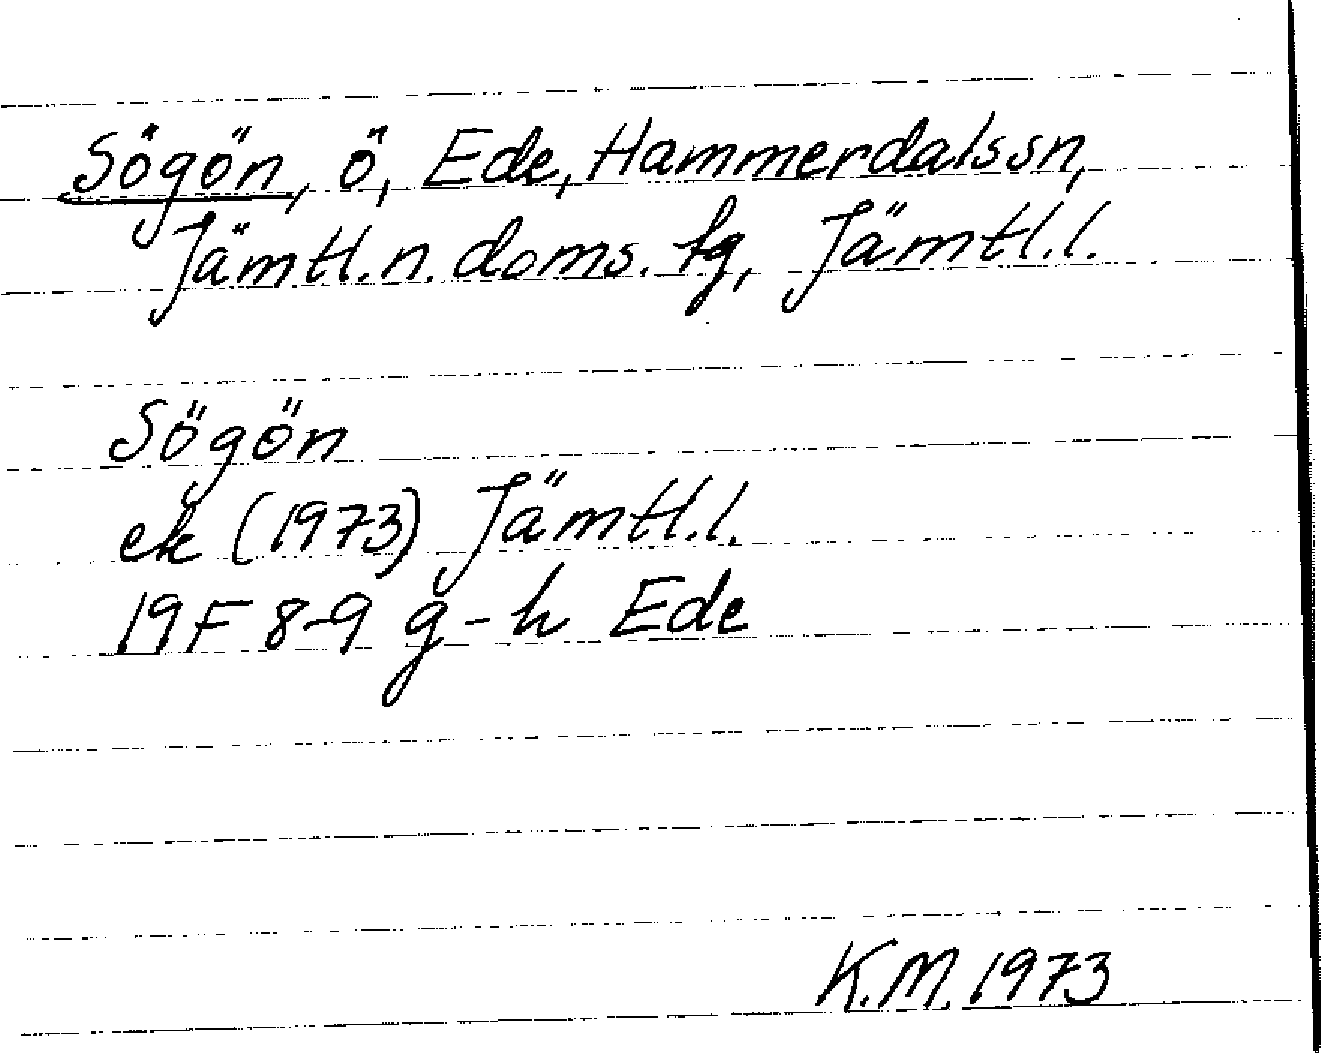 Sögön, ö, Ede, Hammerdalssn,
Jämtl.n.doms.fg, Jämtl.l.
Sögön
ek (1973) Jämtl.l.
19F 8-9 g-h Ede
K.M. 1973